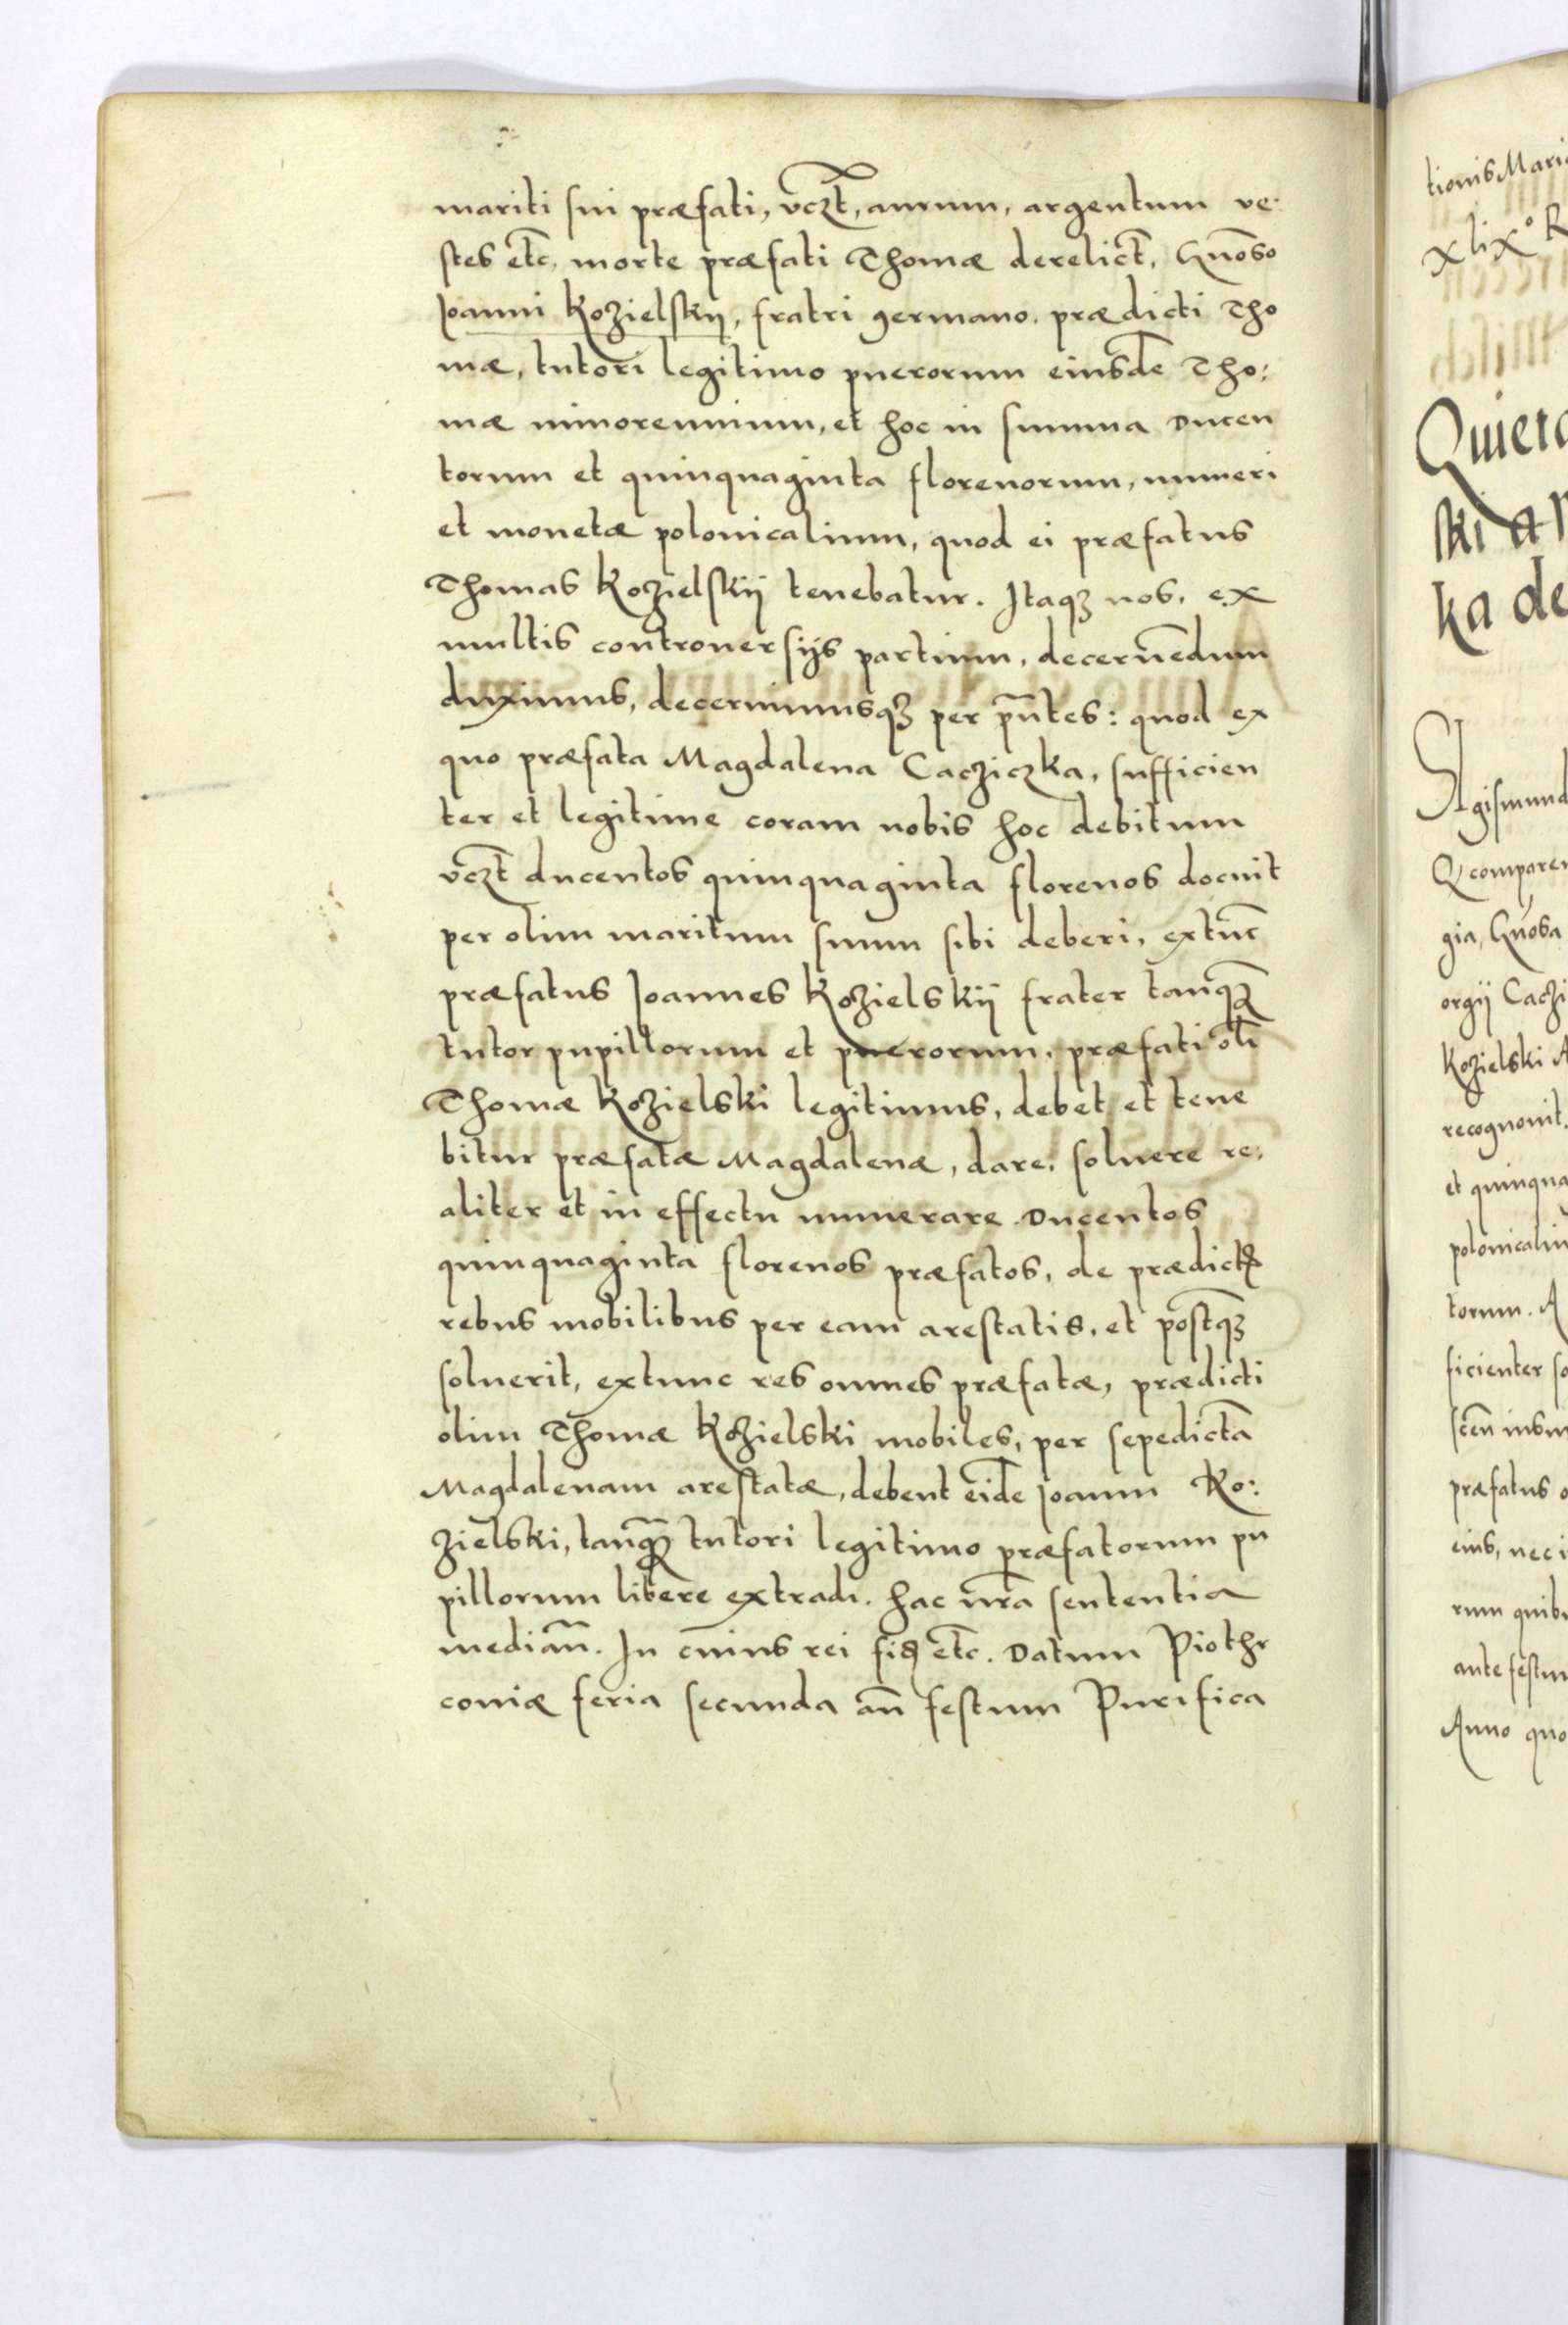 mariti sui præfati, vczt̄, aurum, argentum ve:
stes etc̄, morte præfati Thomæ derelict̄, Gnōso
Joanni Kozielskij, fratri germano, prædicti Tho
mæ, tutori legitimo puerorum eiusdē Tho:
mæ minorennium, et hoc in summa Ducen
torum et quinquaginta florenorum, numeri
et monetæ polonicalium, quod ei præfatus
Thomas Kozielskij tenebatur. Itaqꝫ nos, ex
multis controuersijs partium, decernēdum
duximus, decernimusqꝫ per p̄ntes: quod ex
quo præfata Magdalena Cacziczka, sufficien
ter et legitime coram nobis hoc debitum
vczt̄ ducentos quinquaginta florenos docuit
per olim maritum suum sibi deberi, extūc
præfatus Joannes Kozielskij frater tanqꝫ̄
tutor pupillorum et puerorum, præfati olī
Thomæ Kozielski legitimus, debet et tene
bitur præfatæ Magdalenæ, dare, soluere re:
aliter et in effectu numerare Ducentos
quinquaginta florenos præfatos, de prædictꝭ
rebus mobilibus per eam arestatis, et postqꝫ̄
soluerit, extunc res omnes præfatæ, prædicti
olim Thomæ Kozielski mobiles, per sepedictā
Magdalenam arestatæ, debent eidē Joanni Ko:
zielski, tanqꝫ̄ tutori legitimo præfatorum pu
pillorum libere extradi. hac nr̄a sententia
mediañ. In cuius rei fiꝺ etc̄. Datum Piothr
coniæ feria secunda añ festum Purifica
tionis Mari
xlix° R
Quieta
ski a
ka de
SIgismund
Q compare
gia, Gnōsa
orgij Caczi
Kozielski A
recognouit.
et quinqua
polonicaliu
torum. A
ficienter so
sceñ insu
præfatus o
eius, nec i
rum quibu
ante festu
Anno quo